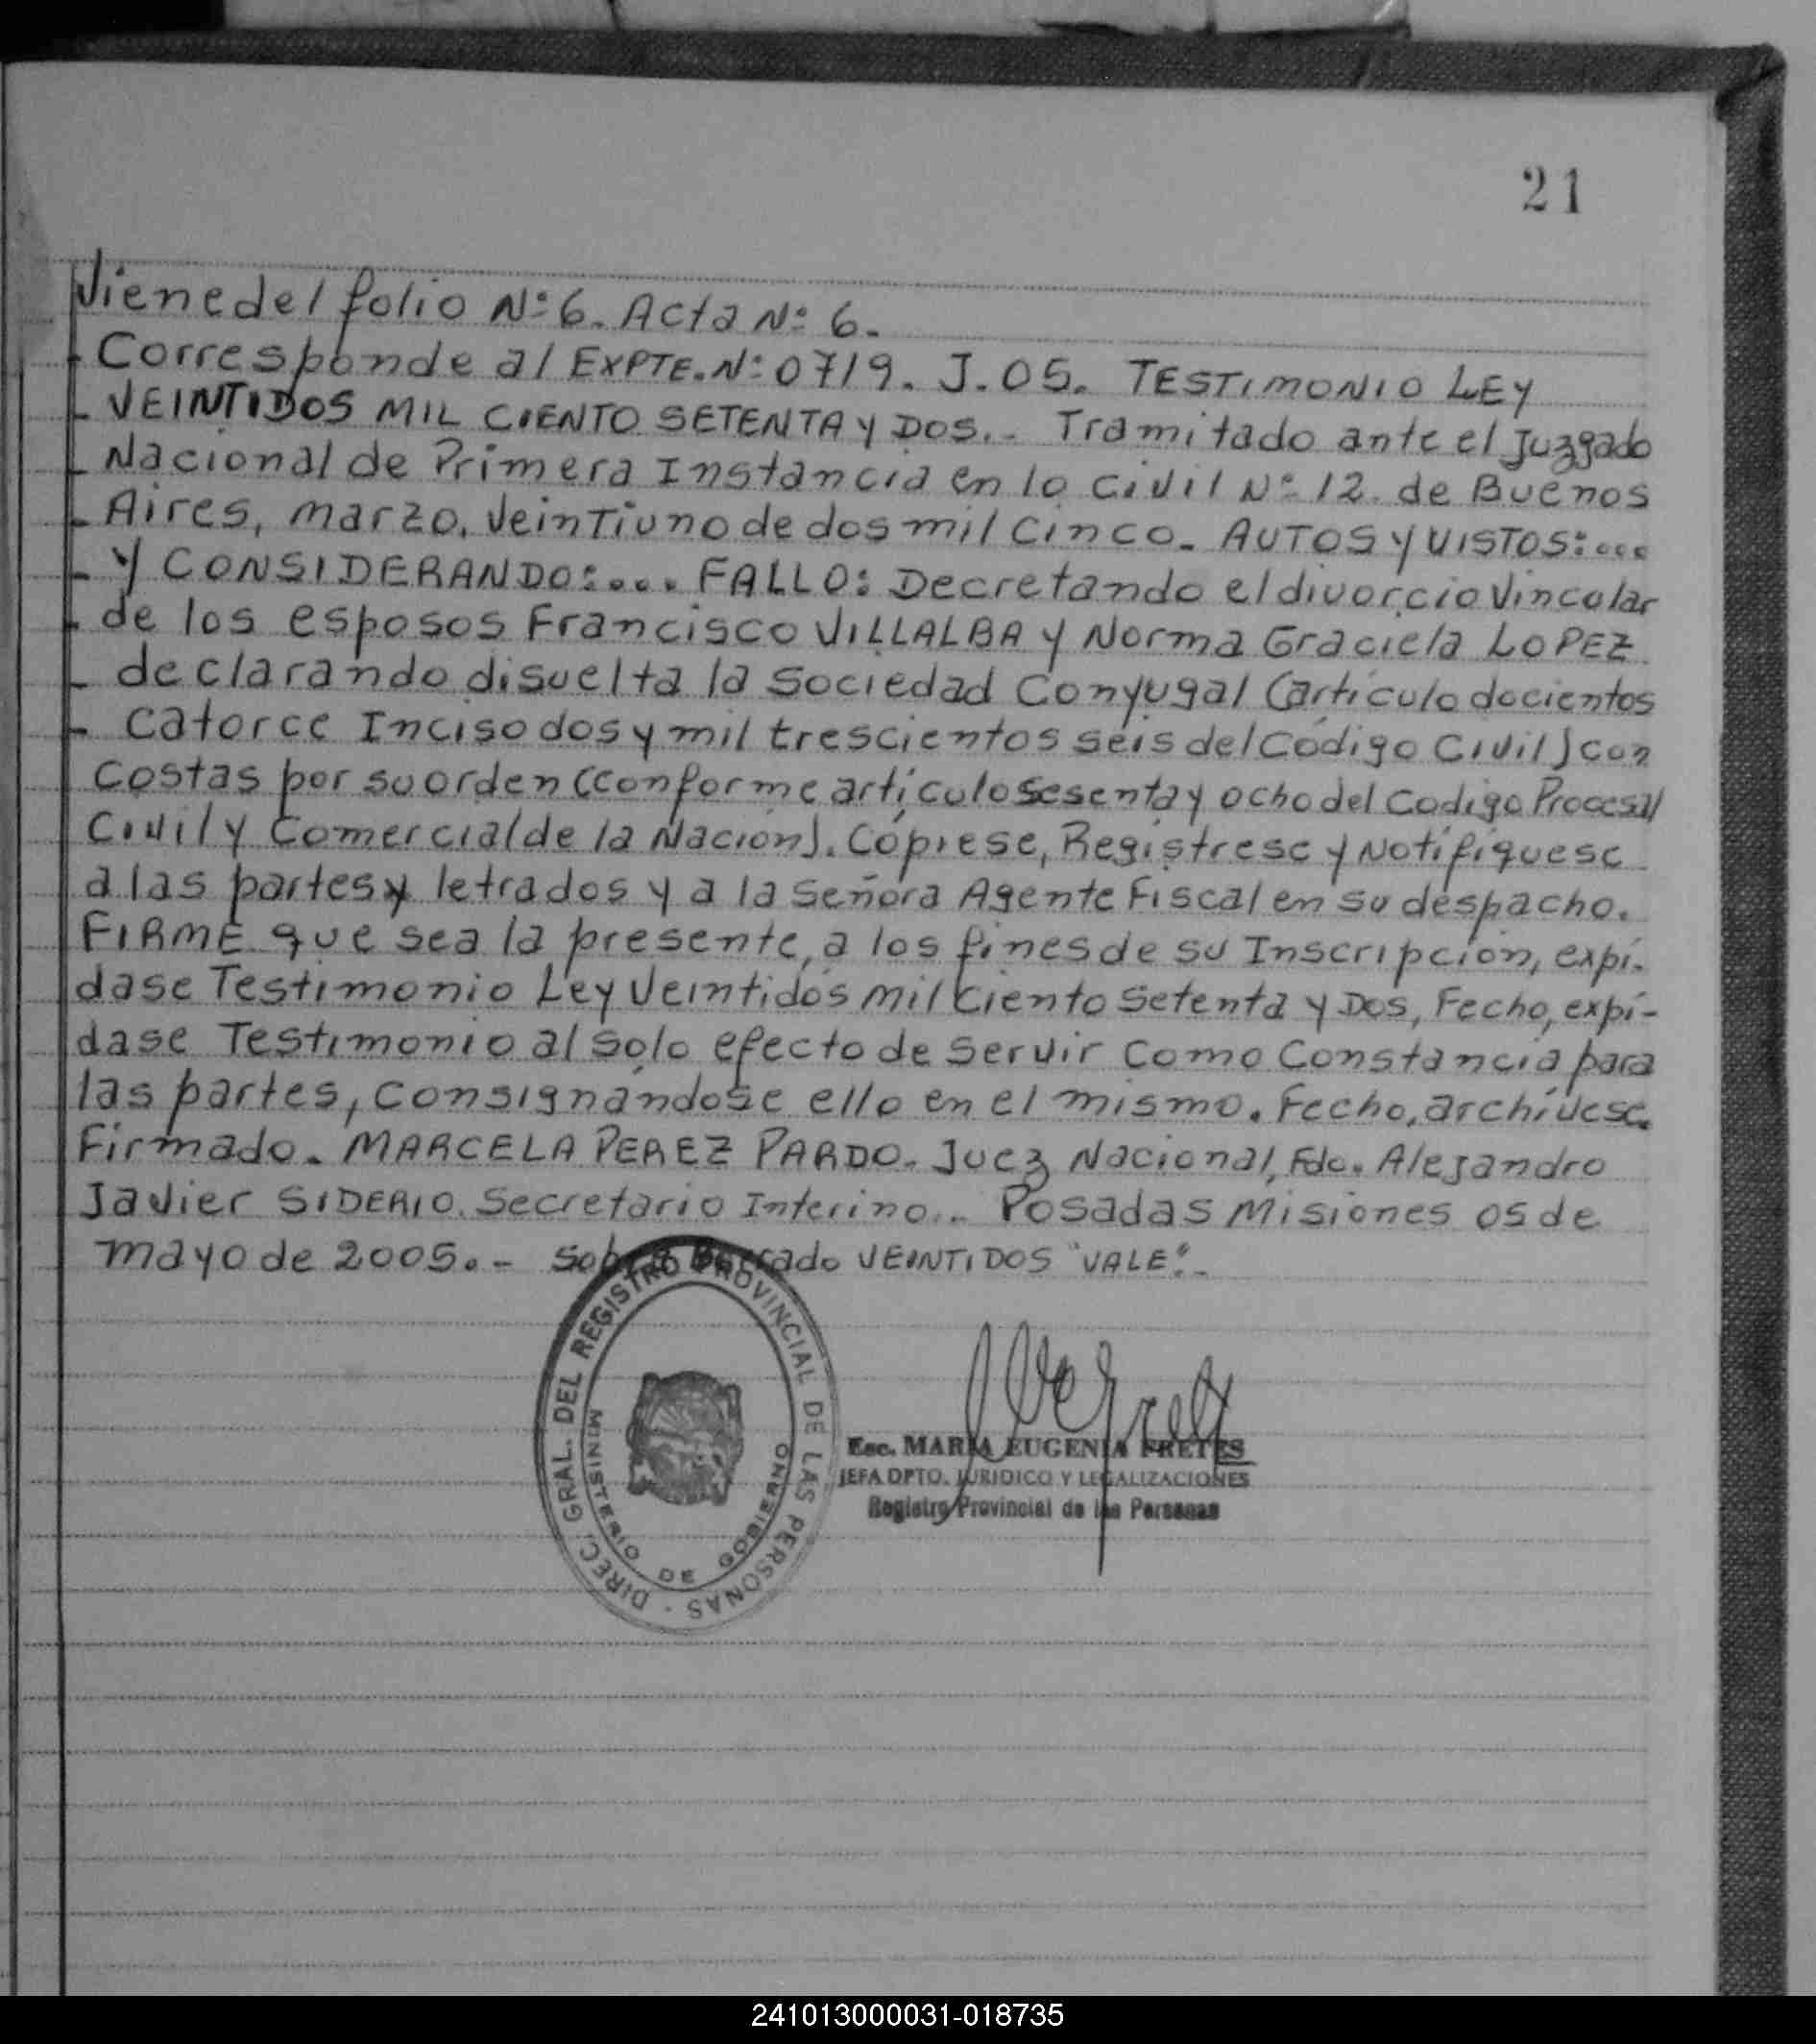 21
Viene del folio Nº 6. Acta Nº 6.
Corresponde al EXPTE. Nº 0719. J. 05. TESTIMONIO LEY
VEINTIDOS MIL CIENTO SETENTA Y DOS.. Tramitado ante el Juzgado
Nacional de Primera Instancia en lo Civil Nº 12. de Buenos
Aires, marzo, veintiuno de dos mil cinco. AUTOS Y VISTOS:...
Y CONSIDERANDO:... FALLO: Decretando el divorcio vincular
de los esposos Francisco VILLALBA y Norma Graciela LOPEZ
declarando disuelta la Sociedad Conyugal (artículo docientos
catorce Inciso dos y mil trescientos seis del Código Civil) con
Costas por su orden (conforme artículo sesenta y ocho del Codigo Procesal
Civil y Comercial de la Nación). Cópiese, Regístrese y Notifíquese
a las partes y letrados y a la Señora Agente Fiscal en su despacho.
FIRME que sea la presente, a los fines de su Inscripción, expí-
dase Testimonio Ley Veintidós mil Ciento Setenta y Dos, Fecho, expí-
dase Testimonio al sólo efecto de Servir como Constancia para
las partes, consignándose ello en el mismo. Fecho, archívese.
Firmado. MARCELA PEREZ PARDO. Juez Nacional, Fdo. Alejandro
Javier SIDERIO. Secretario Interino... Posadas Misiones 05 de
mayo de 2005.- Sobre Borrado VEINTIDOS "VALE".-
DIREC. GRAL. DEL REGISTRO PROVINCIAL DE LAS PERSONAS -
MINISTERIO DE GOBIERNO
Esc. MARIA EUGENIA FRETES
JEFA DPTO. JURIDICO Y LEGALIZACIONES
Registro Provincial de las Personas
241013000031-018735